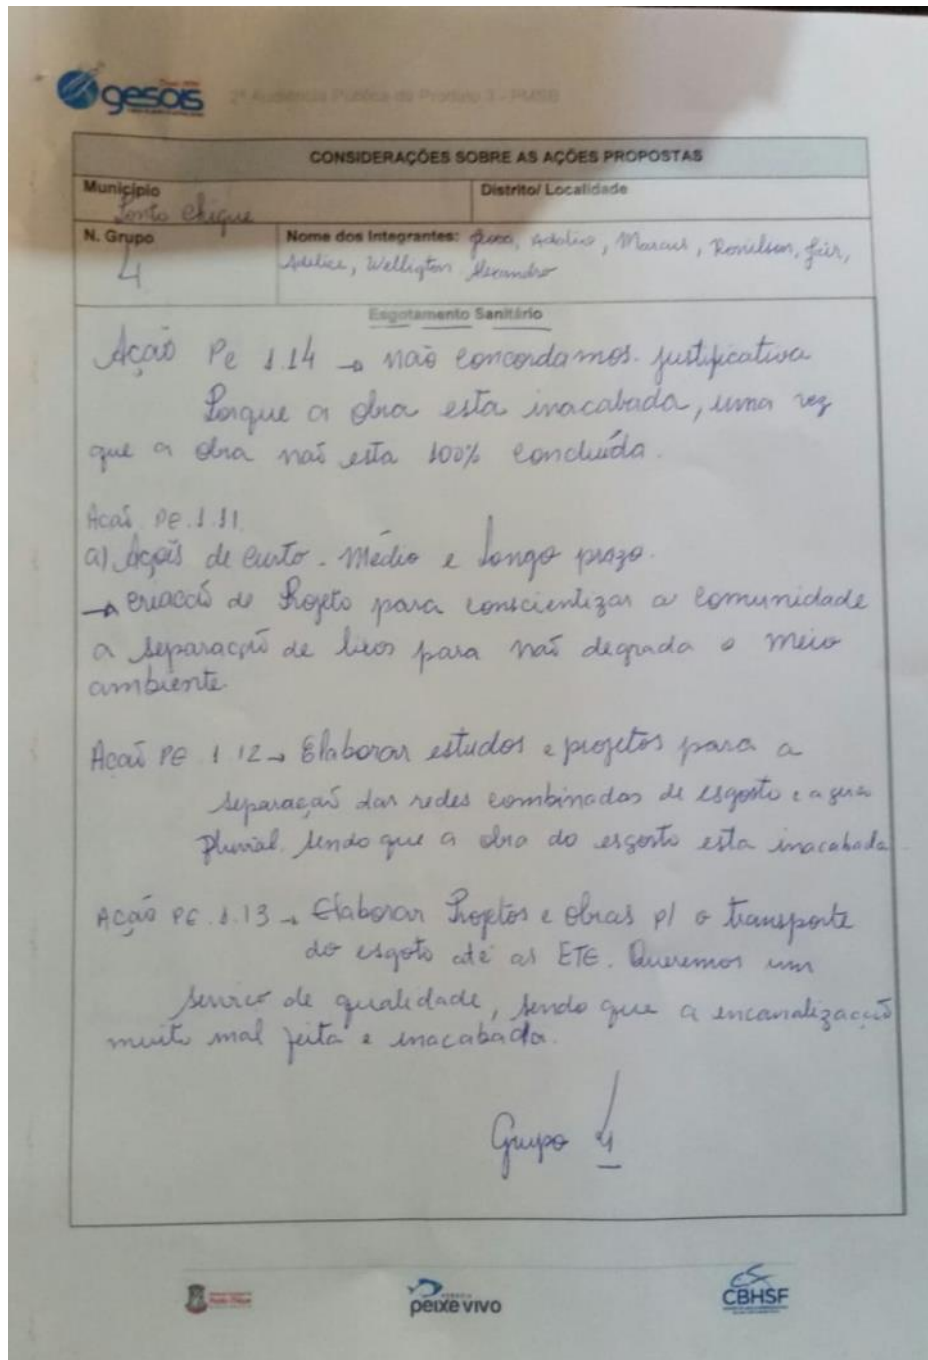 gesois
2ª Audiência Pública do Produto 3 - PMSB
CONSIDERAÇÕES SOBRE AS AÇÕES PROPOSTAS
Município
Distrito/ Localidade
Ponto Chique
N. Grupo
Nome dos Integrantes: Adelino, Marcus, Ronilson, Jair,
4
Adelice, Welligton Alexandro
Esgotamento Sanitário
Ação Pe 1.14 → não concordamos. justificativa
Porque a obra esta inacabada, uma vez
que a obra não esta 100% concluída.
Acaõ PE.1.11.
a) Açois de curto. Médio e longo prazo.
→ criaccõ de Projeto para conscientizar a comunidade
a separação de lixos para não degrada o meio
ambiente.
Acaõ PE 1.12 → Elaborar estudos e projetos para a
separação das redes combinadas de esgosto e
Pluvial. sendo que a obra do esgosto esta inacabada.
Ação PE.1.13 → Elaborar Projetos e obras p/ o transporte
do esgoto até as ETE. Queremos um
servico de qualidade, sendo que a encanalização
muito mal feita e inacabada.
Grupo 4
peixe vivo
CBHSF